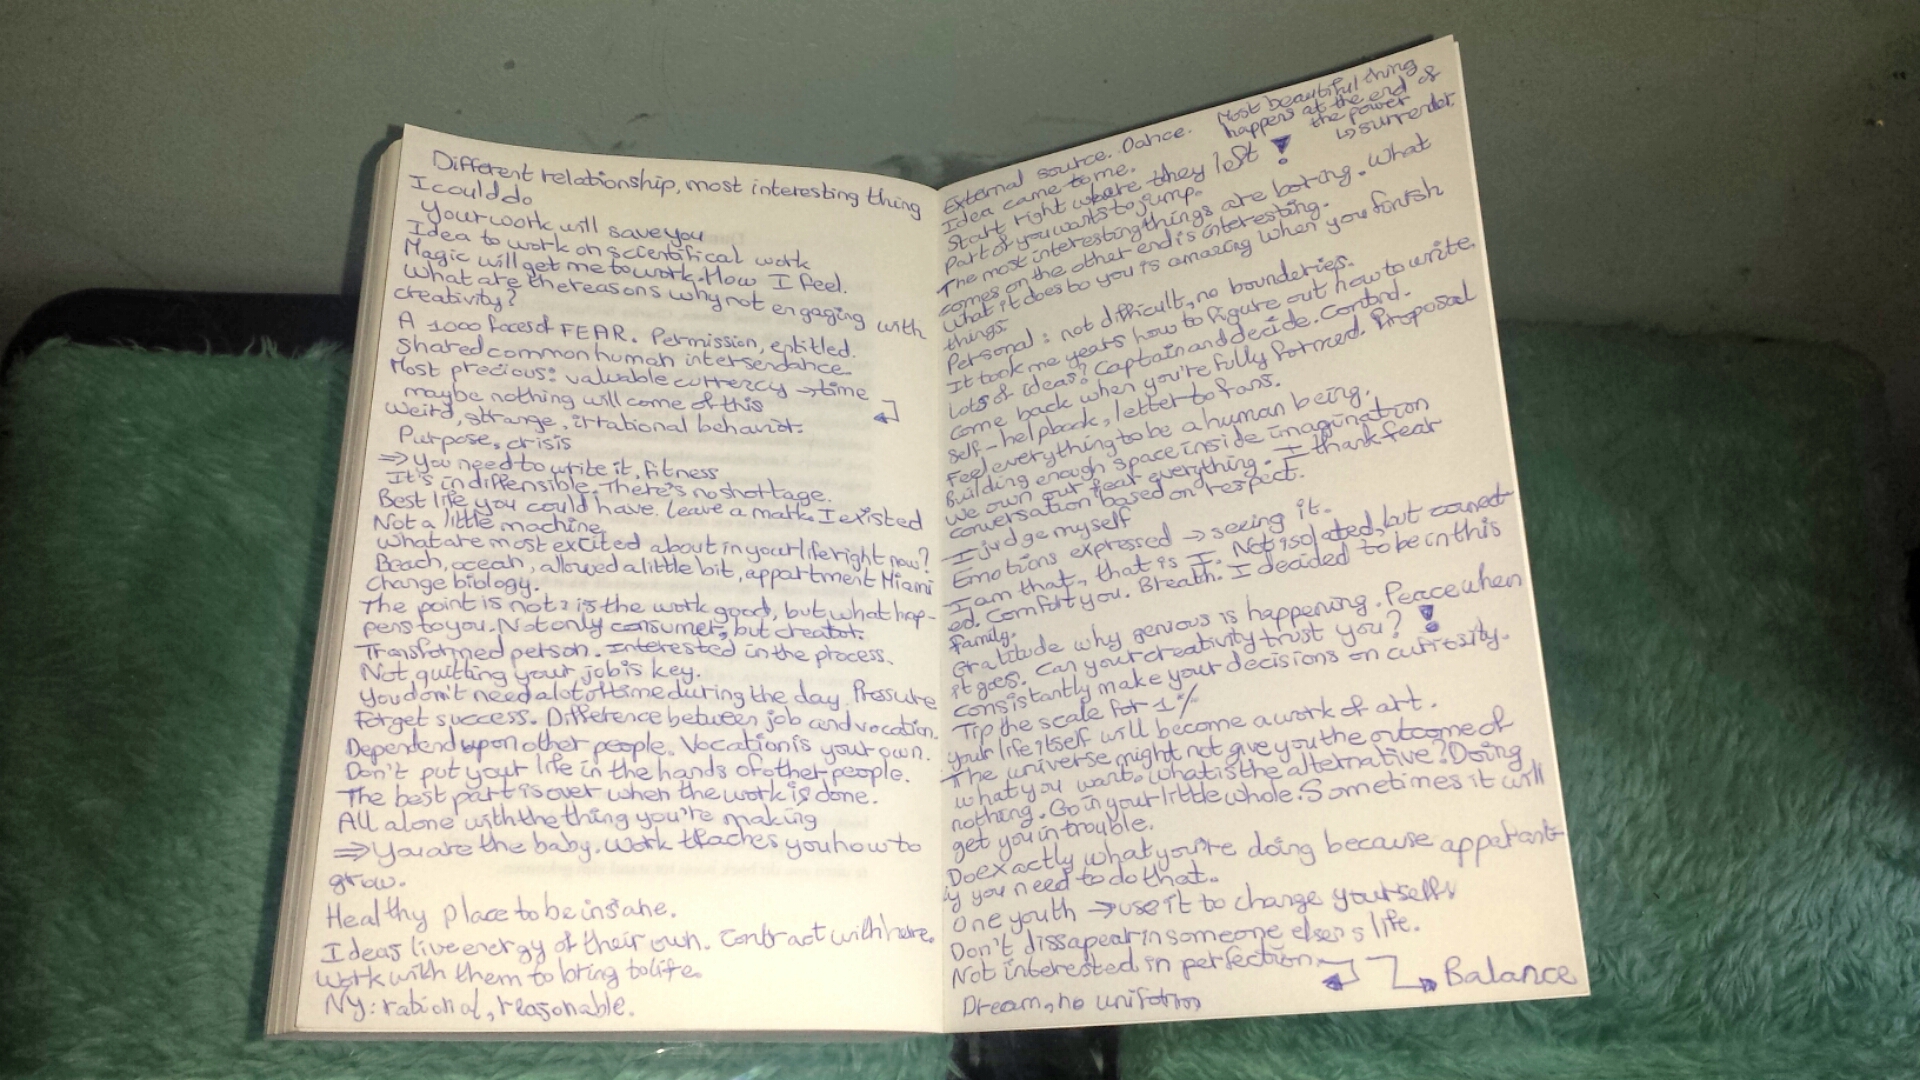 Different relationship, most interesting thing
I could do
Your work will save you
Idea to work on scientifical work
Magic will get me to work. How I feel.
What are the reasons why not engaging with
creativity?
A 1000 faces of FEAR. Permission, entitled.
Shared common human
Most precious: valuable currency → time
maybe nothing will come of this
Weird, strange, irrational behavior.
Purpose, crisis
⇒ You need to write it, fitness
It's indiffensible. There's no shortage.
Best life you could have. Leave a mark. I existed
Not a little machine
What are most excited about in your life right now?
Beach, ocean, allowed a little bit, appartment Miami
Change biology.
The point is not: is the work good, but what hap-
pens to you. Not only consumer, but creator.
Transformed person. Interested in the process.
Not quitting your job is key.
You don't need a lot of time during the day. Pressure
Forget success. Difference between job and vocation.
Depended upon other people. Vocation is your own.
Don't put your life in the hands of other people.
The best part is over when the work is done.
All alone with the thing you're making
⇒ You are the baby. Work teaches you how to
grow.
Healthy place to be insane.
Ideas live energy of their own. Contract with
Work with them to bring to life.
NY: rational, reasonable.
Most beautiful thing
happens at the end of
the power
↳ surrender.
External source. Dance.
Idea came to me.
Start right where they left !
Part of you wants to jump.
The most interesting things are boring. What
comes on the other end is interesting.
What it does to you is amazing when you finish
things.
Personal: not difficult, no bounderies.
It took me years how to figure out how to write
Lots of ideas? Captain and decide. Control.
Come back when you're fully formed. Proposal
Self-helpbook, letter to fans.
Feel everything to be a human being.
Building enough space inside imagination
We own our fear everything. I thank fear
conversation based on respect.
I judge myself
Emotions expressed → seeing it.
I am that, that is I. Not isolated, but connect-
ed. Comfort you. Breath. I decided to be in this
family.
Gratitude why genious is happening. Peace when
it goes. Can your creativity trust you? !
Consistantly make your decisions on curiosity.
Tip the scale for 1%
Your life itself will become a work of art.
The universe might not give you the outcome of
what you want. What is the alternative? Doing
nothing. Go in your little whole. Sometimes it will
get you in trouble.
Do exactly what you're doing because apparant-
ly you need to do that.
One youth → use it to change yourself
Don't dissapear in someone elses's life.
Not interested in perfection. Balance
Dream, no